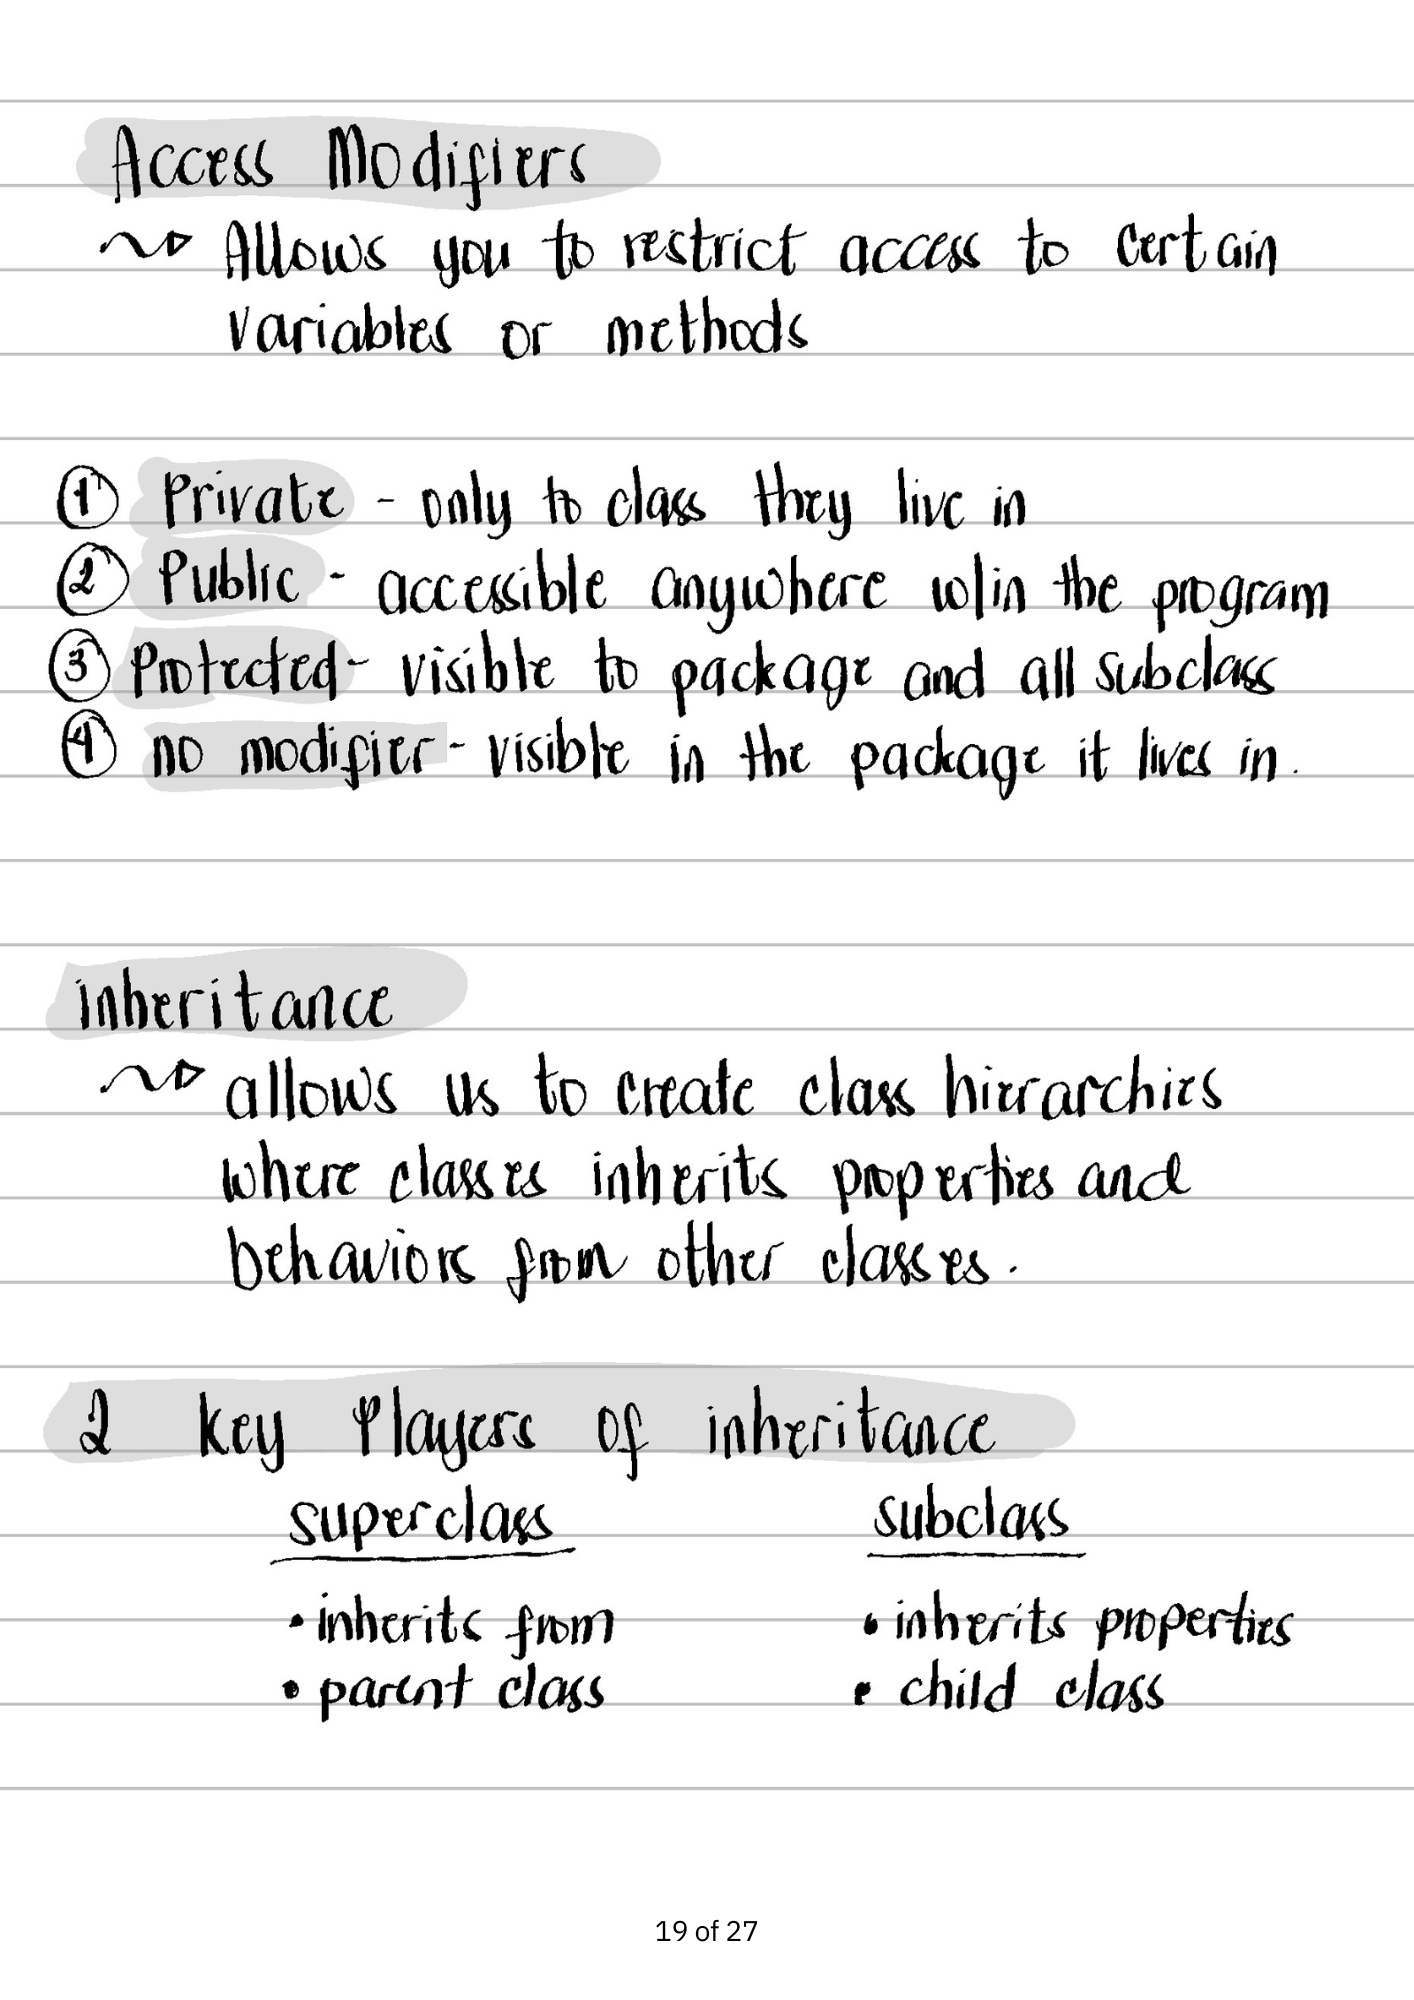 Access Modifiers
Allows you to restrict access to certain
variables or methods
① Private - only to class they live in
② Public - accessible anywhere w/in the program
③ Protected - visible to package and all subclass
④ no modifier - visible in the package it lives in.
inheritance
allows us to create class hierarchies
where classes inherits properties and
behaviors from other classes.
2 key Players of inheritance
superclass subclass
• inherits from • inherits properties
• parent class • child class
19 of 27